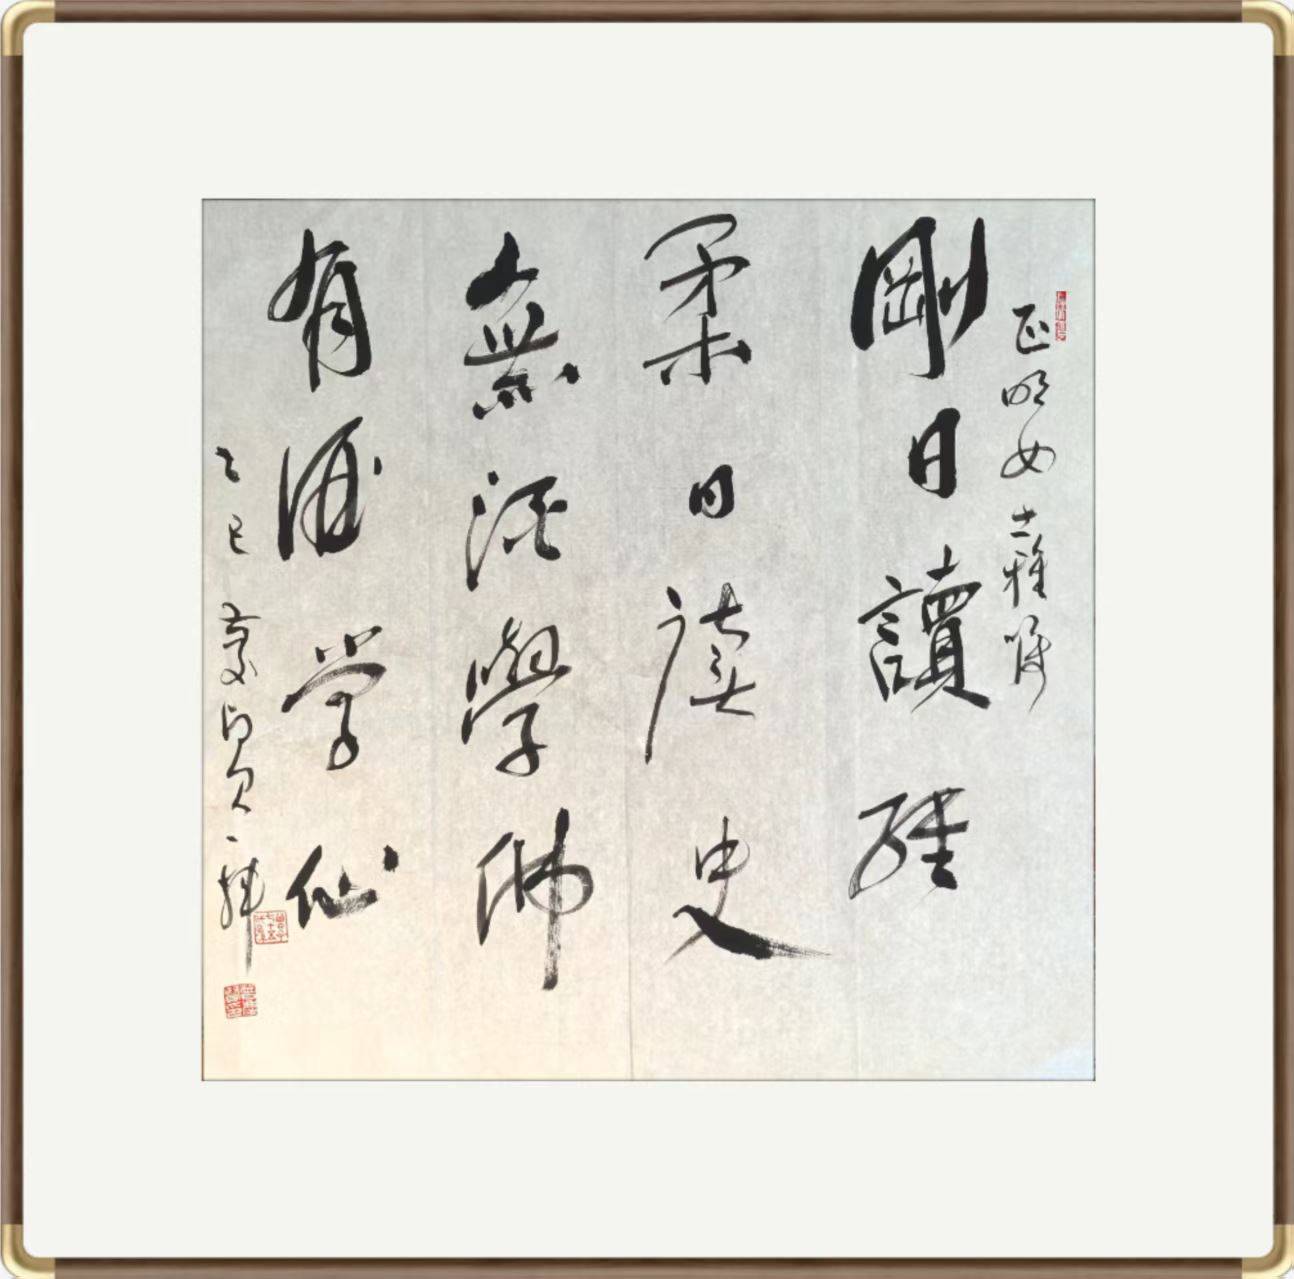 正明女士雅嘱
剛日讀經
柔日讀史
無酒學佛
有酒学仙
乙巳